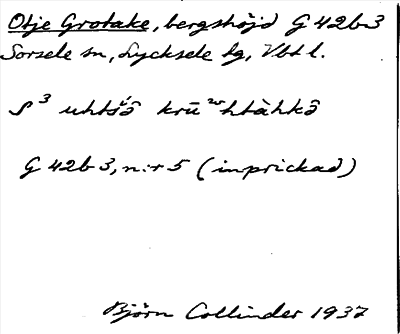 Otje Grotake, bergshöjd G 42b3
Sorsele sn, Lycksele lg, Vbt l.
S³ uhtsō̂ krūʷhtàhkô
G 42b3, n:r 5 (inprickad)
Björn Collinder 1937